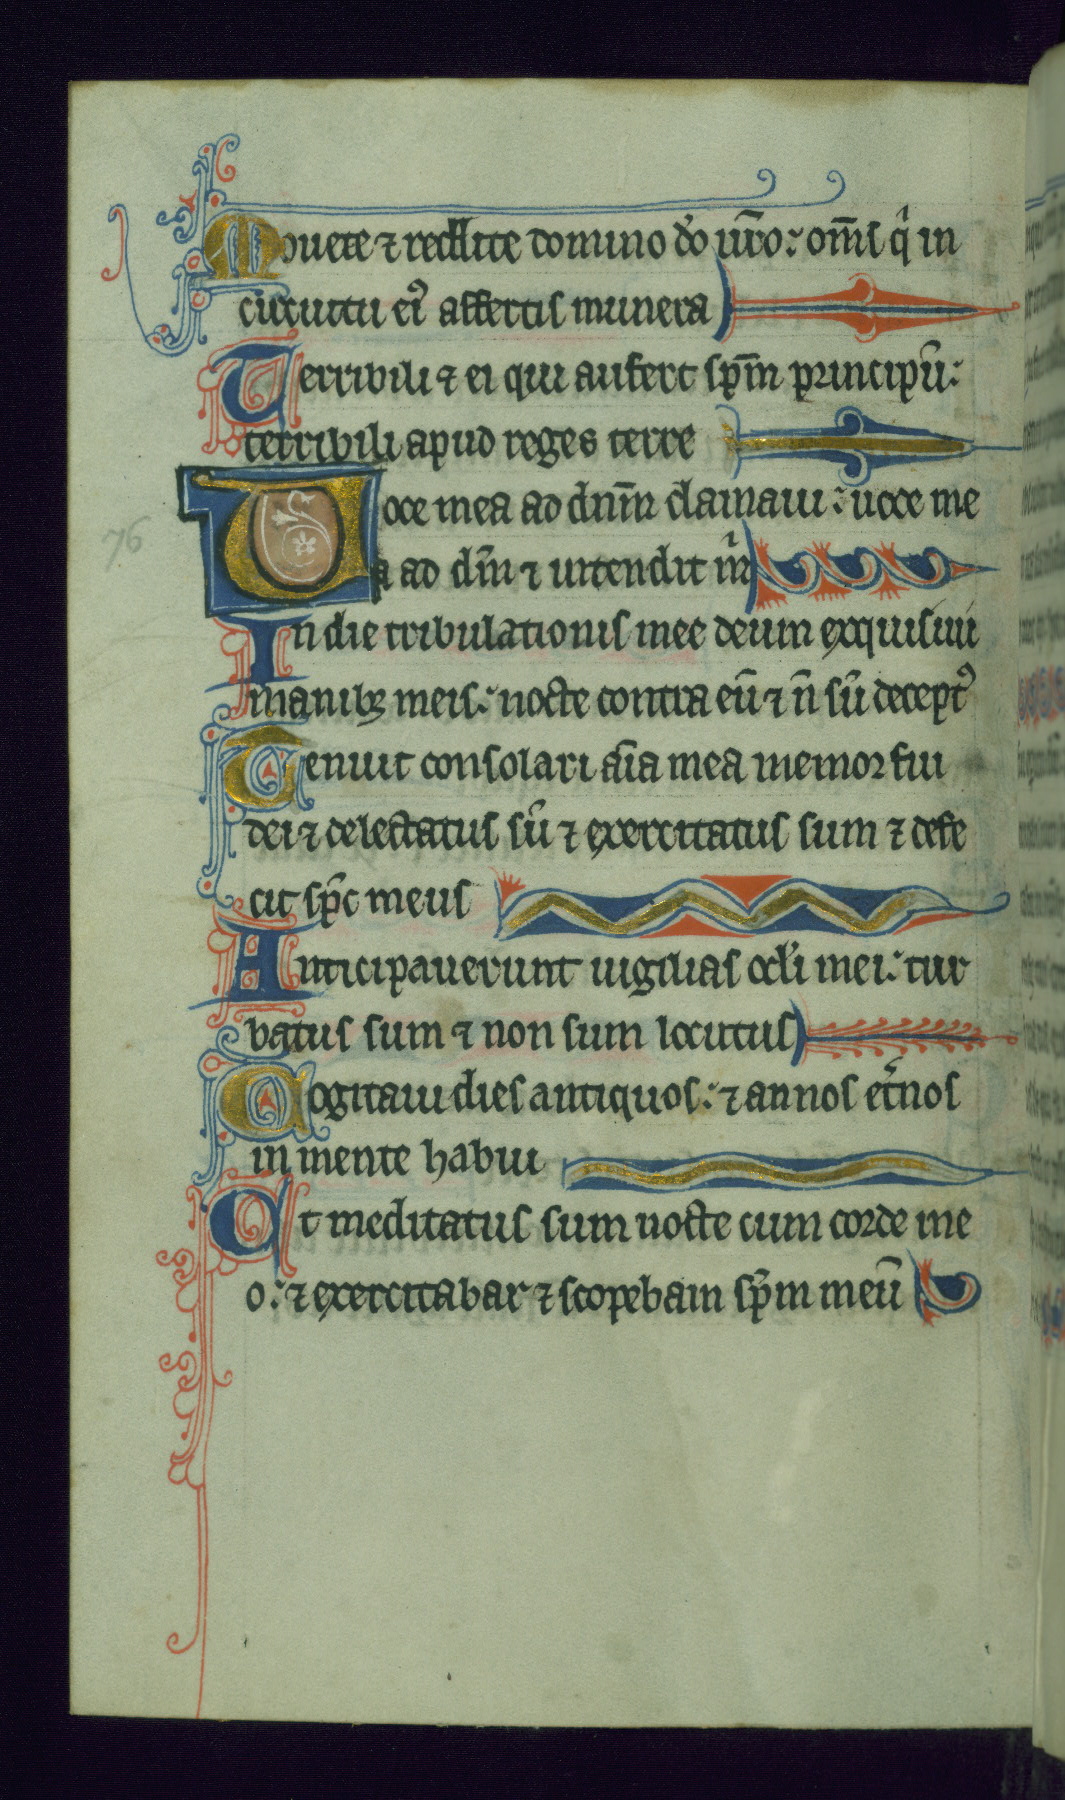 Mouete ⁊ reddite domino do̓ ur̄o: om̄s qͥ in
circuitu ei᷒ affertis munera
Terribili ⁊ ei qui aufert sp̄m principū:
terribili apud reges terre
Uoce mea ad dn̄m clamaui: uoce me
a ad dn̄m ⁊ intendit m̄
In die tribulationis mee deum exquisiui
manibꝫ meis: nocte contra eū ⁊ n̄ sū decept᷒
Renuit consolari aīa mea memor fui
dei ⁊ delectatus sū ⁊ exercitatus sum ⁊ defe
cit sp̄c meus
Anticipauerunt uigilias oc̄li mei: tur
batus sum ⁊ non sum locutus
Cogitaui dies antiquos: ⁊ annos et̓nos
in mente habui
Et meditatus sum nocte cum corde me
o: ⁊ exercitabar ⁊ scopebam sp̄m meū
76